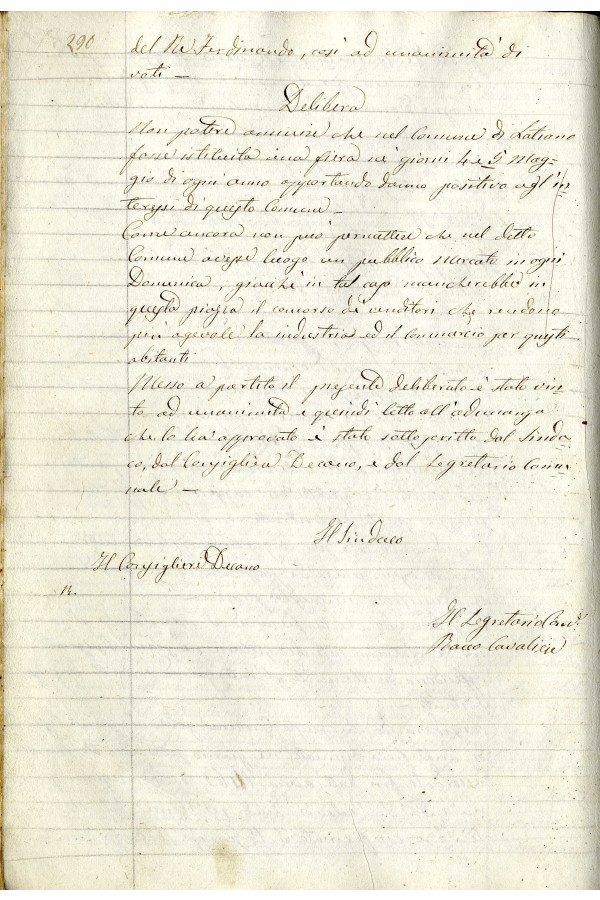 290
del Re Ferdinando, così ad unanimità di
voti —
Delibera
Non potere annuire che nel Comune di Latiano
fosse istituita una fiera ne' giorni 4 e 5 Mag=
gio di ogni anno apportando danno positivo agl'in
teressi di questo Comune —
Come ancora non può permettere che nel detto
Comune avesse luogo un pubblico Mercato in ogni
Domenica, giacchè in tal caso mancherebbe in
questa piazza il concorso de' venditori che rendono
più agevole la industria ed il commercio per questi
abitanti
Messo a partito il presente deliberato è stato vin=
to ad unanimità e quindi letto all'adunanza
che lo ha approvato è stato sottoscritto dal Sinda=
co, dal Consigliere Decano, e dal Segretario Comu=
nale —
Il Sindaco
Il Consigliere Decano
Il Segretario Com.le
Cavaliere